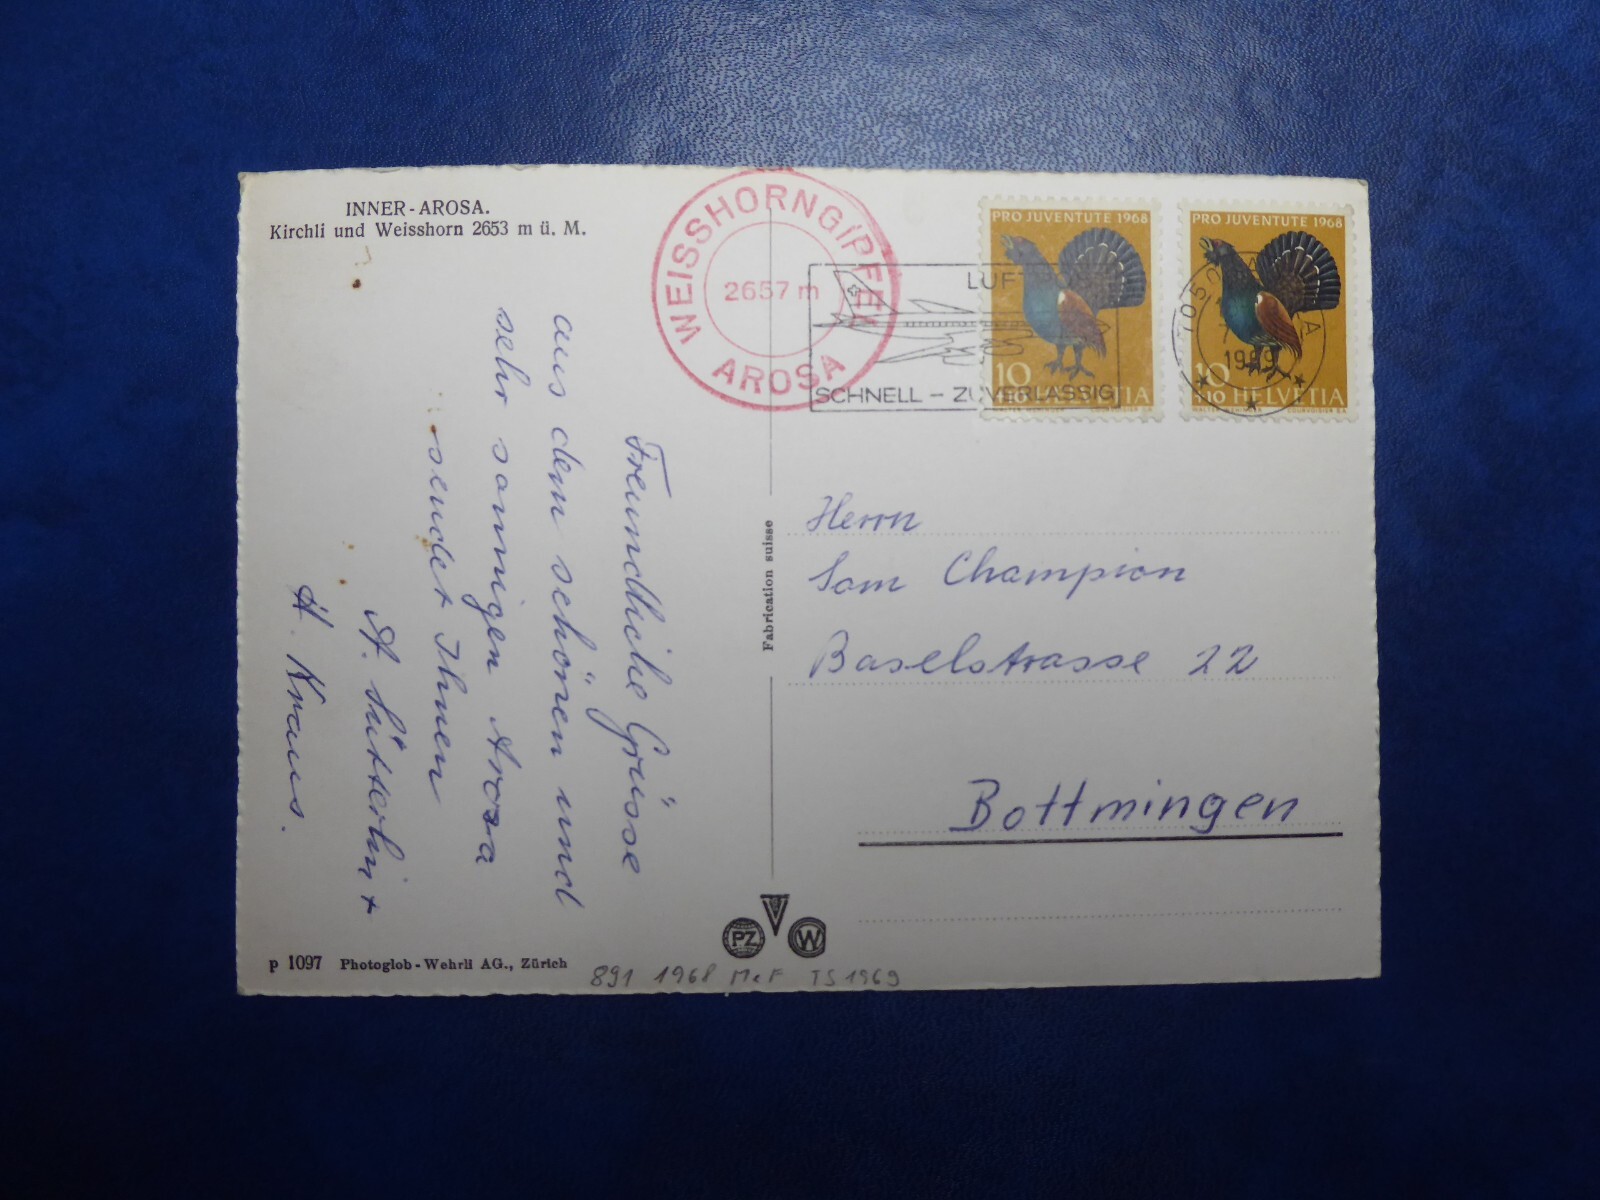 INNER-AROSA.
Kirchli und Weisshorn 2653 m ü. M.
WEISSHORNGIPFEL
2657 m
AROSA
LUFT
SCHNELL - ZUVERLÄSSIG
PRO JUVENTUTE 1968
10
+10 HELVETIA
COURVOISIER S.A.
PRO JUVENTUTE 1968
10
+10 HELVETIA
COURVOISIER S.A.
7050 AROSA
1969
Freundliche Grüsse
aus dem schönen und
sehr sonnigen Arosa
sendet Ihnen
A. Sütterlin +
H. Kraus.
Fabrication suisse
Herrn
Sam Champion
Baselstrasse 22
Bottmingen
PZ
W
p 1097 Photoglob-Wehrli AG., Zürich
891 1968 MeF TS 1969